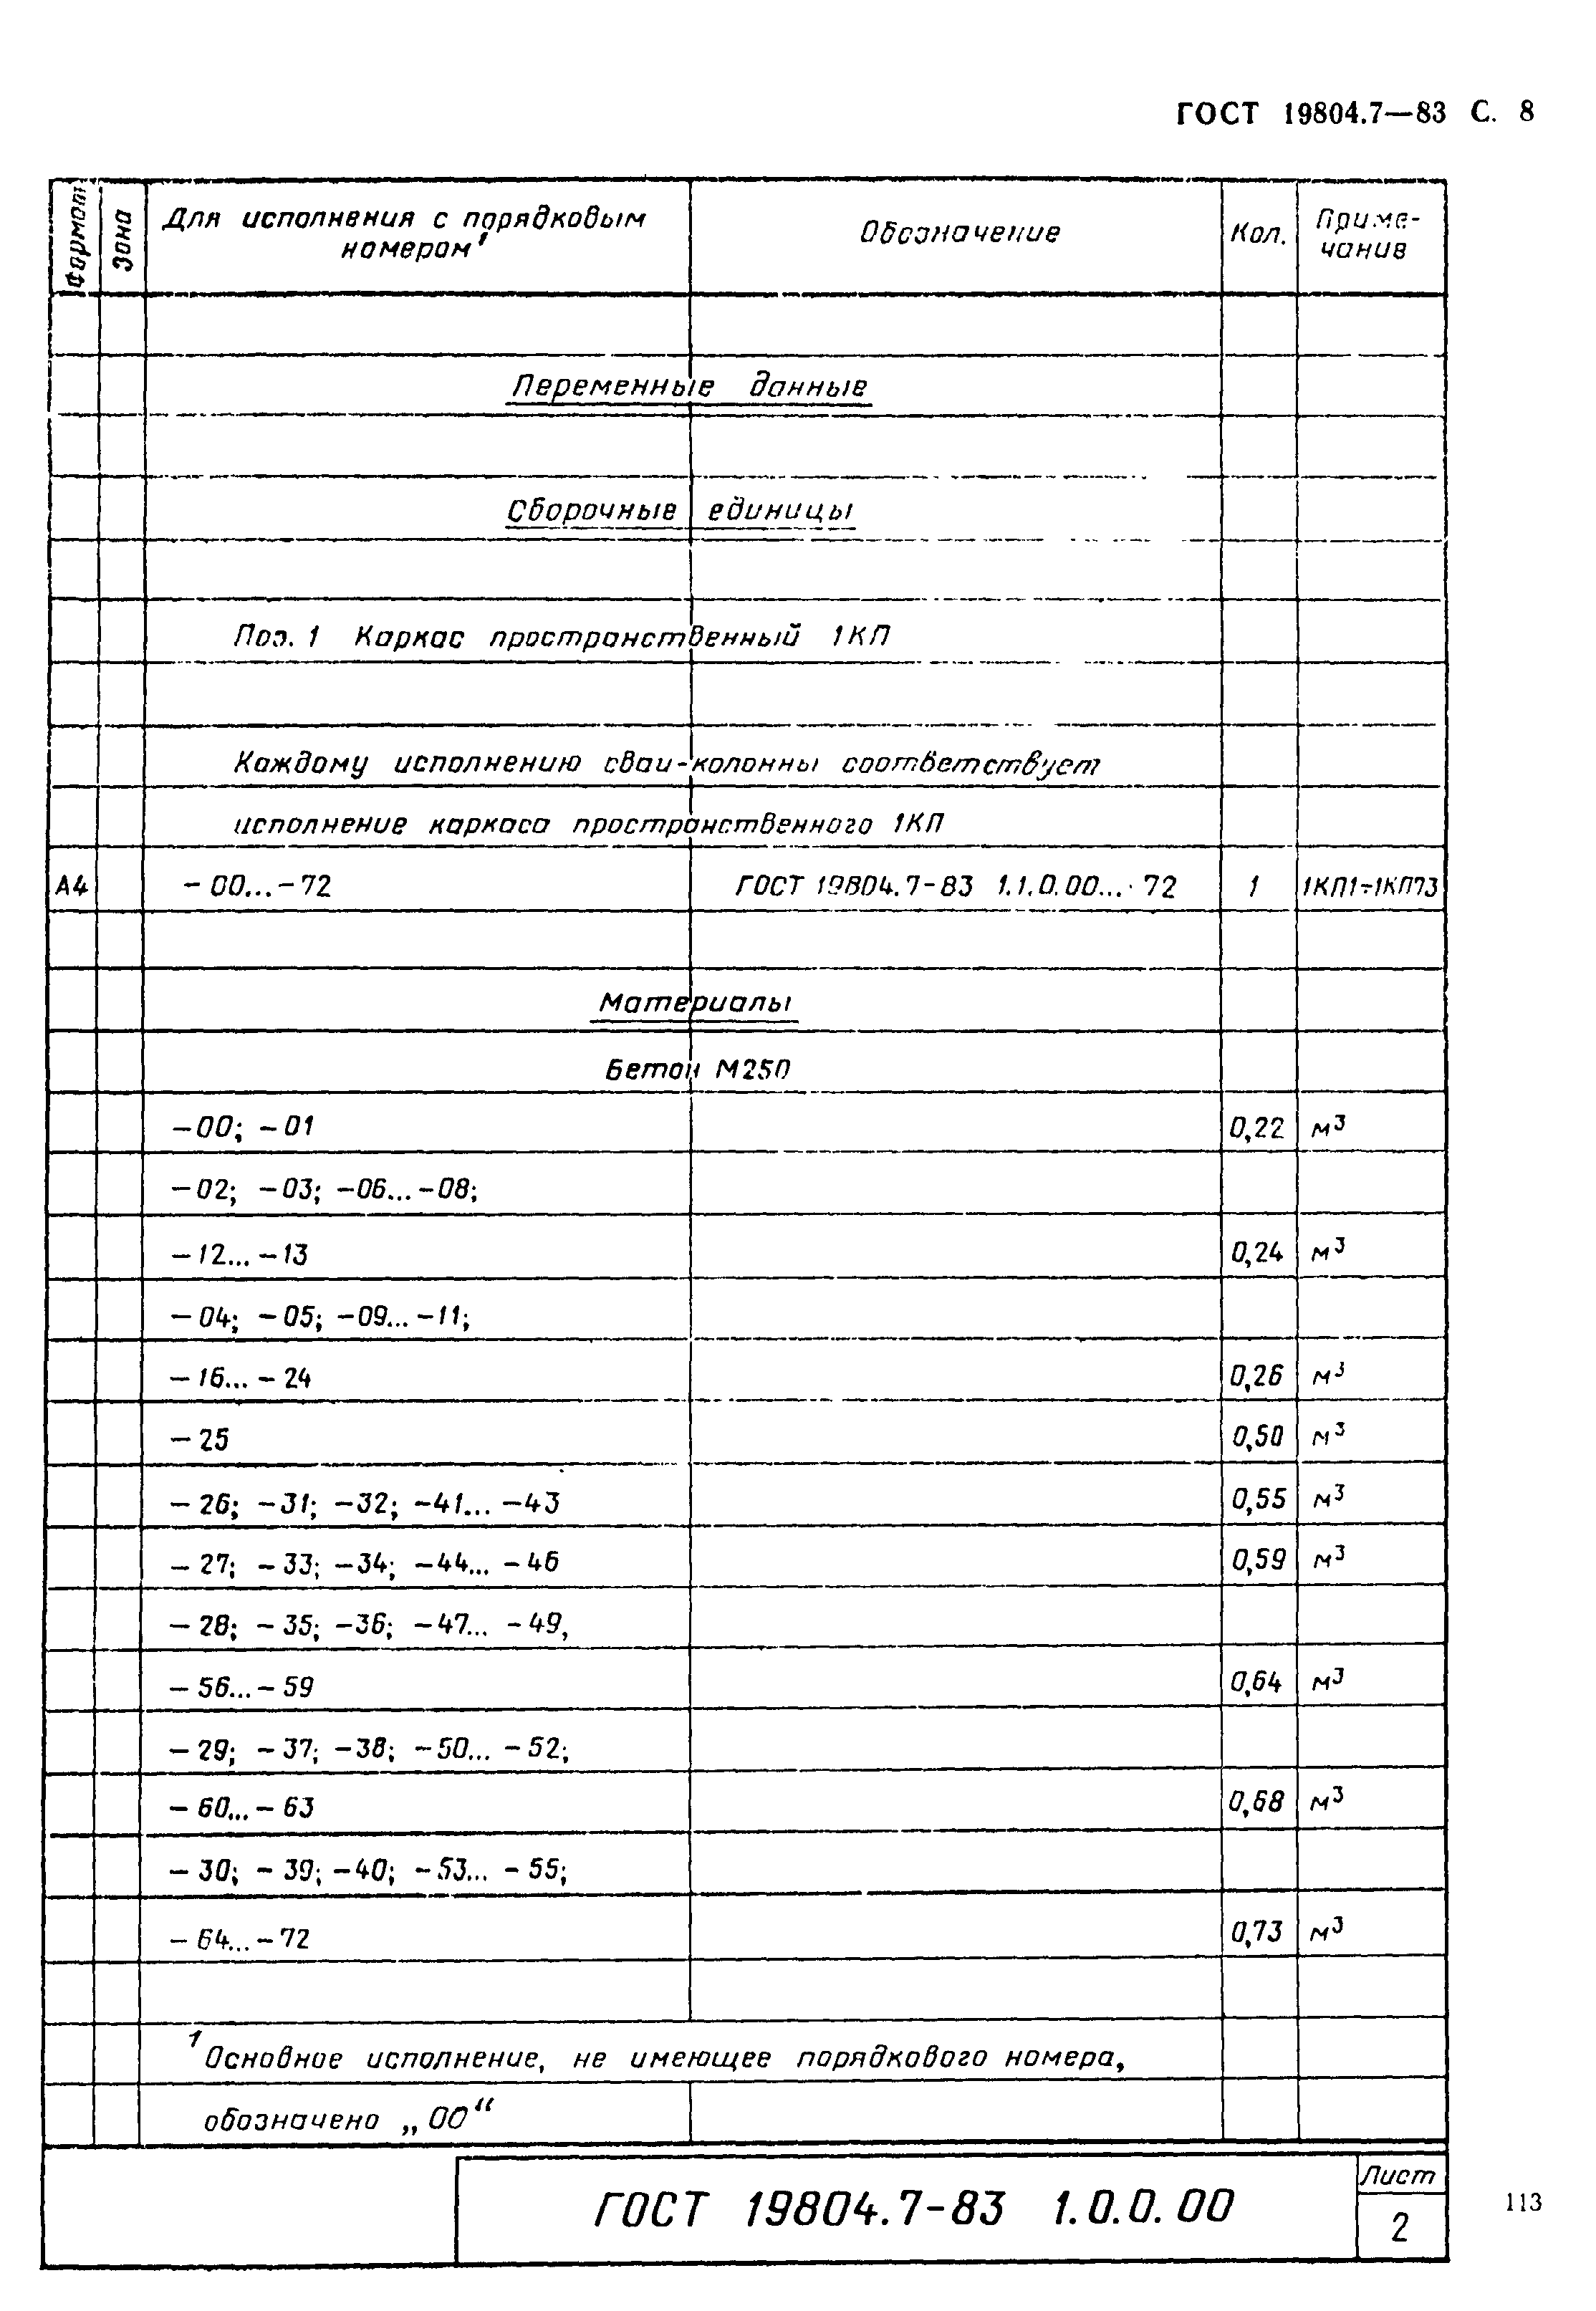 ГОСТ 19804.7—83 С. 8
Формат
Зона
Для исполнения с порядковым
номером¹
Обозначение
Кол.
Приме-
чание
Переменные данные
Сборочные единицы
Поз. 1 Каркас пространственный 1КП
Каждому исполнению сваи-колонны соответствует
исполнение каркаса пространственного 1КП
А4 - 00...-72 ГОСТ 19804.7-83 1.1.0.00...-72 1 1КП1÷1КП73
Материалы
Бетон М250
-00; -01 0,22 м³
-02; -03; -06...-08;
-12...-13 0,24 м³
-04; -05; -09...-11;
-16...-24 0,26 м³
-25 0,50 м³
-26; -31; -32; -41...-43 0,55 м³
-27; -33; -34; -44...-46 0,59 м³
-28; -35; -36; -47...-49,
-56...-59 0,64 м³
-29; -37; -38; -50...-52;
-60...-63 0,68 м³
-30; -39; -40; -53...-55;
-64...-72 0,73 м³
¹ Основное исполнение, не имеющее порядкового номера,
обозначено „00“
ГОСТ 19804.7-83 1.0.0.00
Лист
2
113